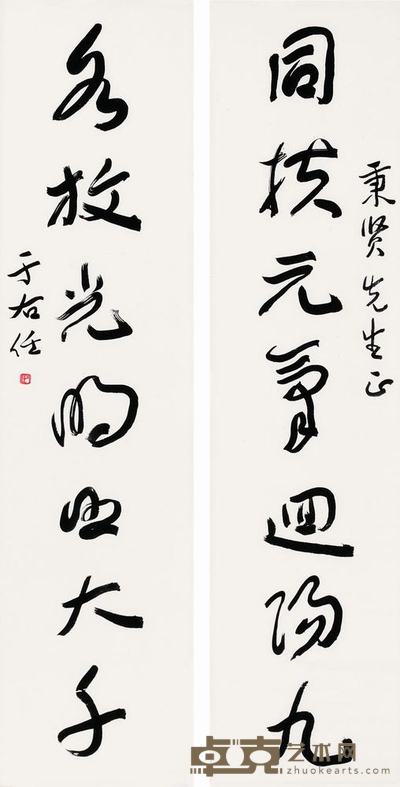 同扶元氣迴陽九
秉贤先生正
各放光明照大千
于右任
卓克艺术网
zhuokearts.com